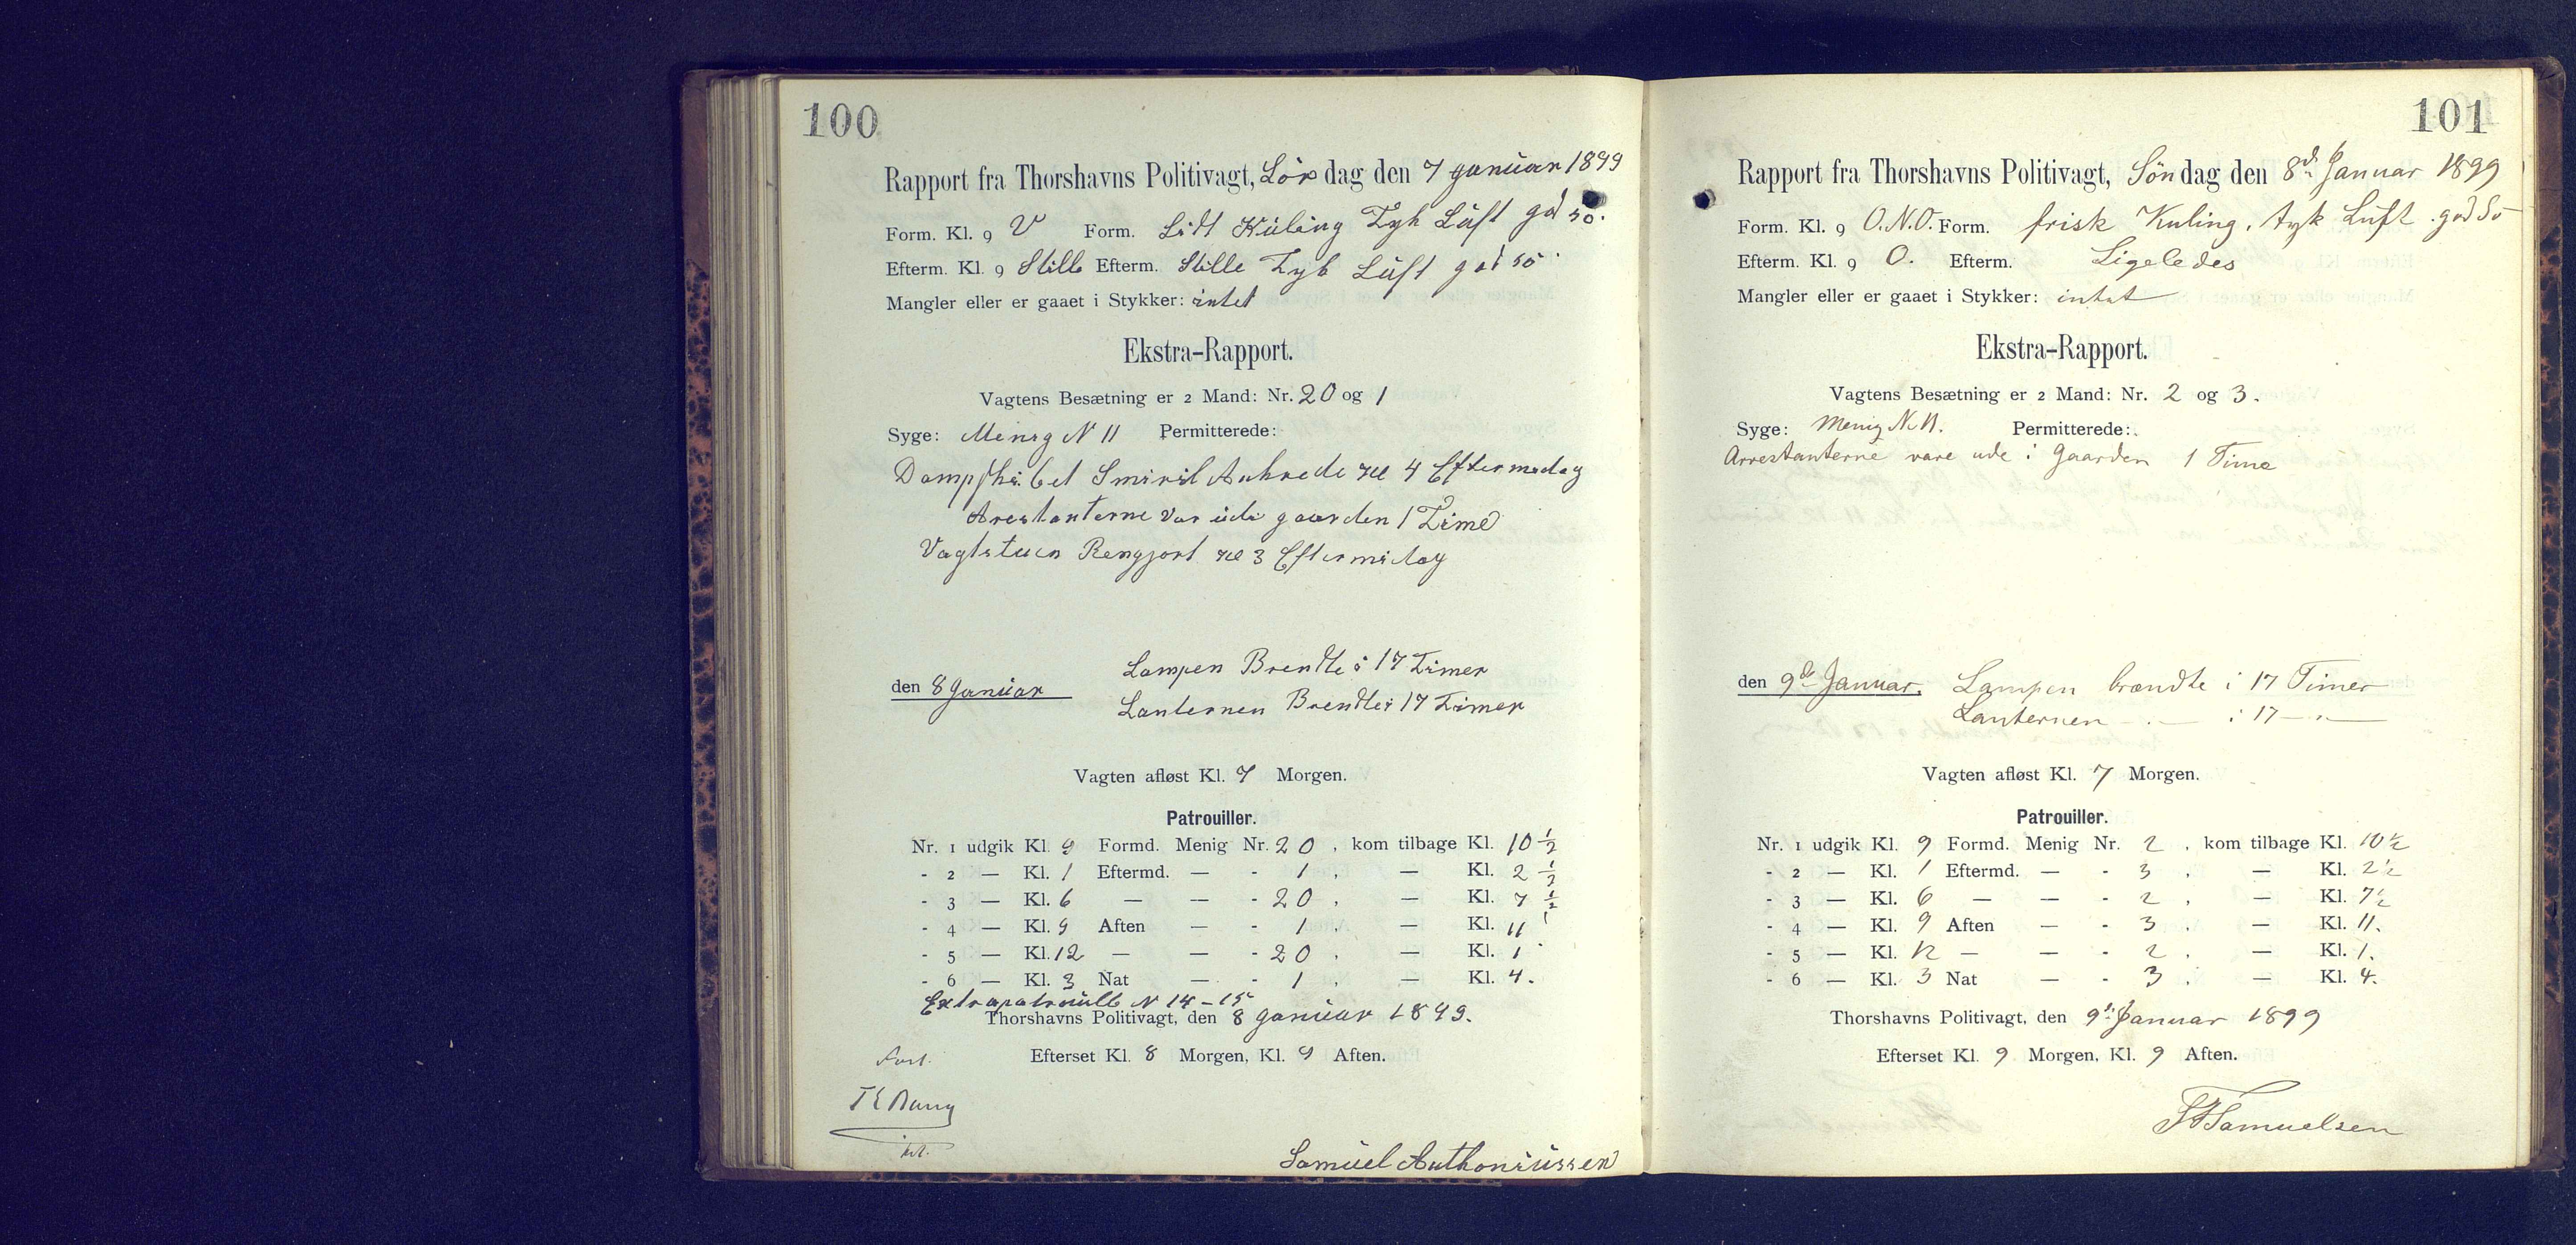 100
Rapport fra Thorshavns Politivagt, Lör dag den 7 januar 1899
Form. Kl. 9 V Form. Lidt Kuling Tyk Luft god sö.
Efterm. Kl. 9 Stille Efterm. Stille Tyk Luft god sö
Mangler eller er gaaet i Stykker: intet
Ekstra-Rapport.
Vagtens Besætning er 2 Mand: Nr. 20 og 1
Syge: Menig N 11 Permitterede:
Dampskibet Smiril Ankrede Kl 4 Eftermedag
Arestanterne var ude gaarden 1 Time
Vagtstuen Rengjort Kl 3 Eftermidag
Lampen Brendte i 17 Timer
den 8 Januar
Lanternen Brendte i 17 Timer
Vagten afløst Kl. 7 Morgen.
Patrouiller.
Nr. 1 udgik Kl. 9 Formd. Menig Nr. 20, kom tilbage Kl. 10 1/2
- 2 — Kl. 1 Eftermd. — - 1, — Kl. 2 1/2
- 3 — Kl. 6 — — - 20, — Kl. 7 1/2
- 4 — Kl. 9 Aften — - 1, — Kl. 11
- 5 — Kl. 12 — — - 20, — Kl. 1
- 6 — Kl. 3 Nat — - 1, — Kl. 4.
Extrapatruille N 14-15
Thorshavns Politivagt, den 8 januar 1899.
Efterset Kl. 8 Morgen, Kl. 9 Aften.
Samuel Anthoniussen
101
Rapport fra Thorshavns Politivagt, Sön dag den 8de Januar 1899
Form. Kl. 9 O.N.O. Form. frisk Kuling, tyk Luft. god Sö
Efterm. Kl. 9 O. Efterm. Ligeledes
Mangler eller er gaaet i Stykker: intet
Ekstra-Rapport.
Vagtens Besætning er 2 Mand: Nr. 2 og 3.
Syge: Menig N. 11. Permitterede:
Arrestanterne vare ude i Gaarden 1 Time
den 9de Januar. Lampen brændte i 17 Timer
Lanternen —"— i 17 —"—
Vagten afløst Kl. 7 Morgen.
Patrouiller.
Nr. 1 udgik Kl. 9 Formd. Menig Nr. 2, kom tilbage Kl. 10 1/2
- 2 — Kl. 1 Eftermd. — - 3, — Kl. 2 1/2
- 3 — Kl. 6 — — - 2, — Kl. 7 1/2
- 4 — Kl. 9 Aften — - 3, — Kl. 11.
- 5 — Kl. 12 — — - 2, — Kl. 1.
- 6 — Kl. 3 Nat — - 3, — Kl. 4.
Thorshavns Politivagt, den 9de Januar 1899
Efterset Kl. 9 Morgen, Kl. 9 Aften.
Samuelsen